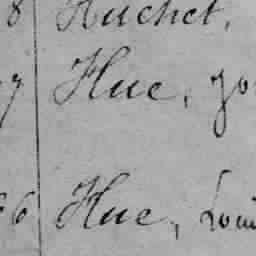 8 Huchet,
7 Hue, Jo
6 Hue, Loui